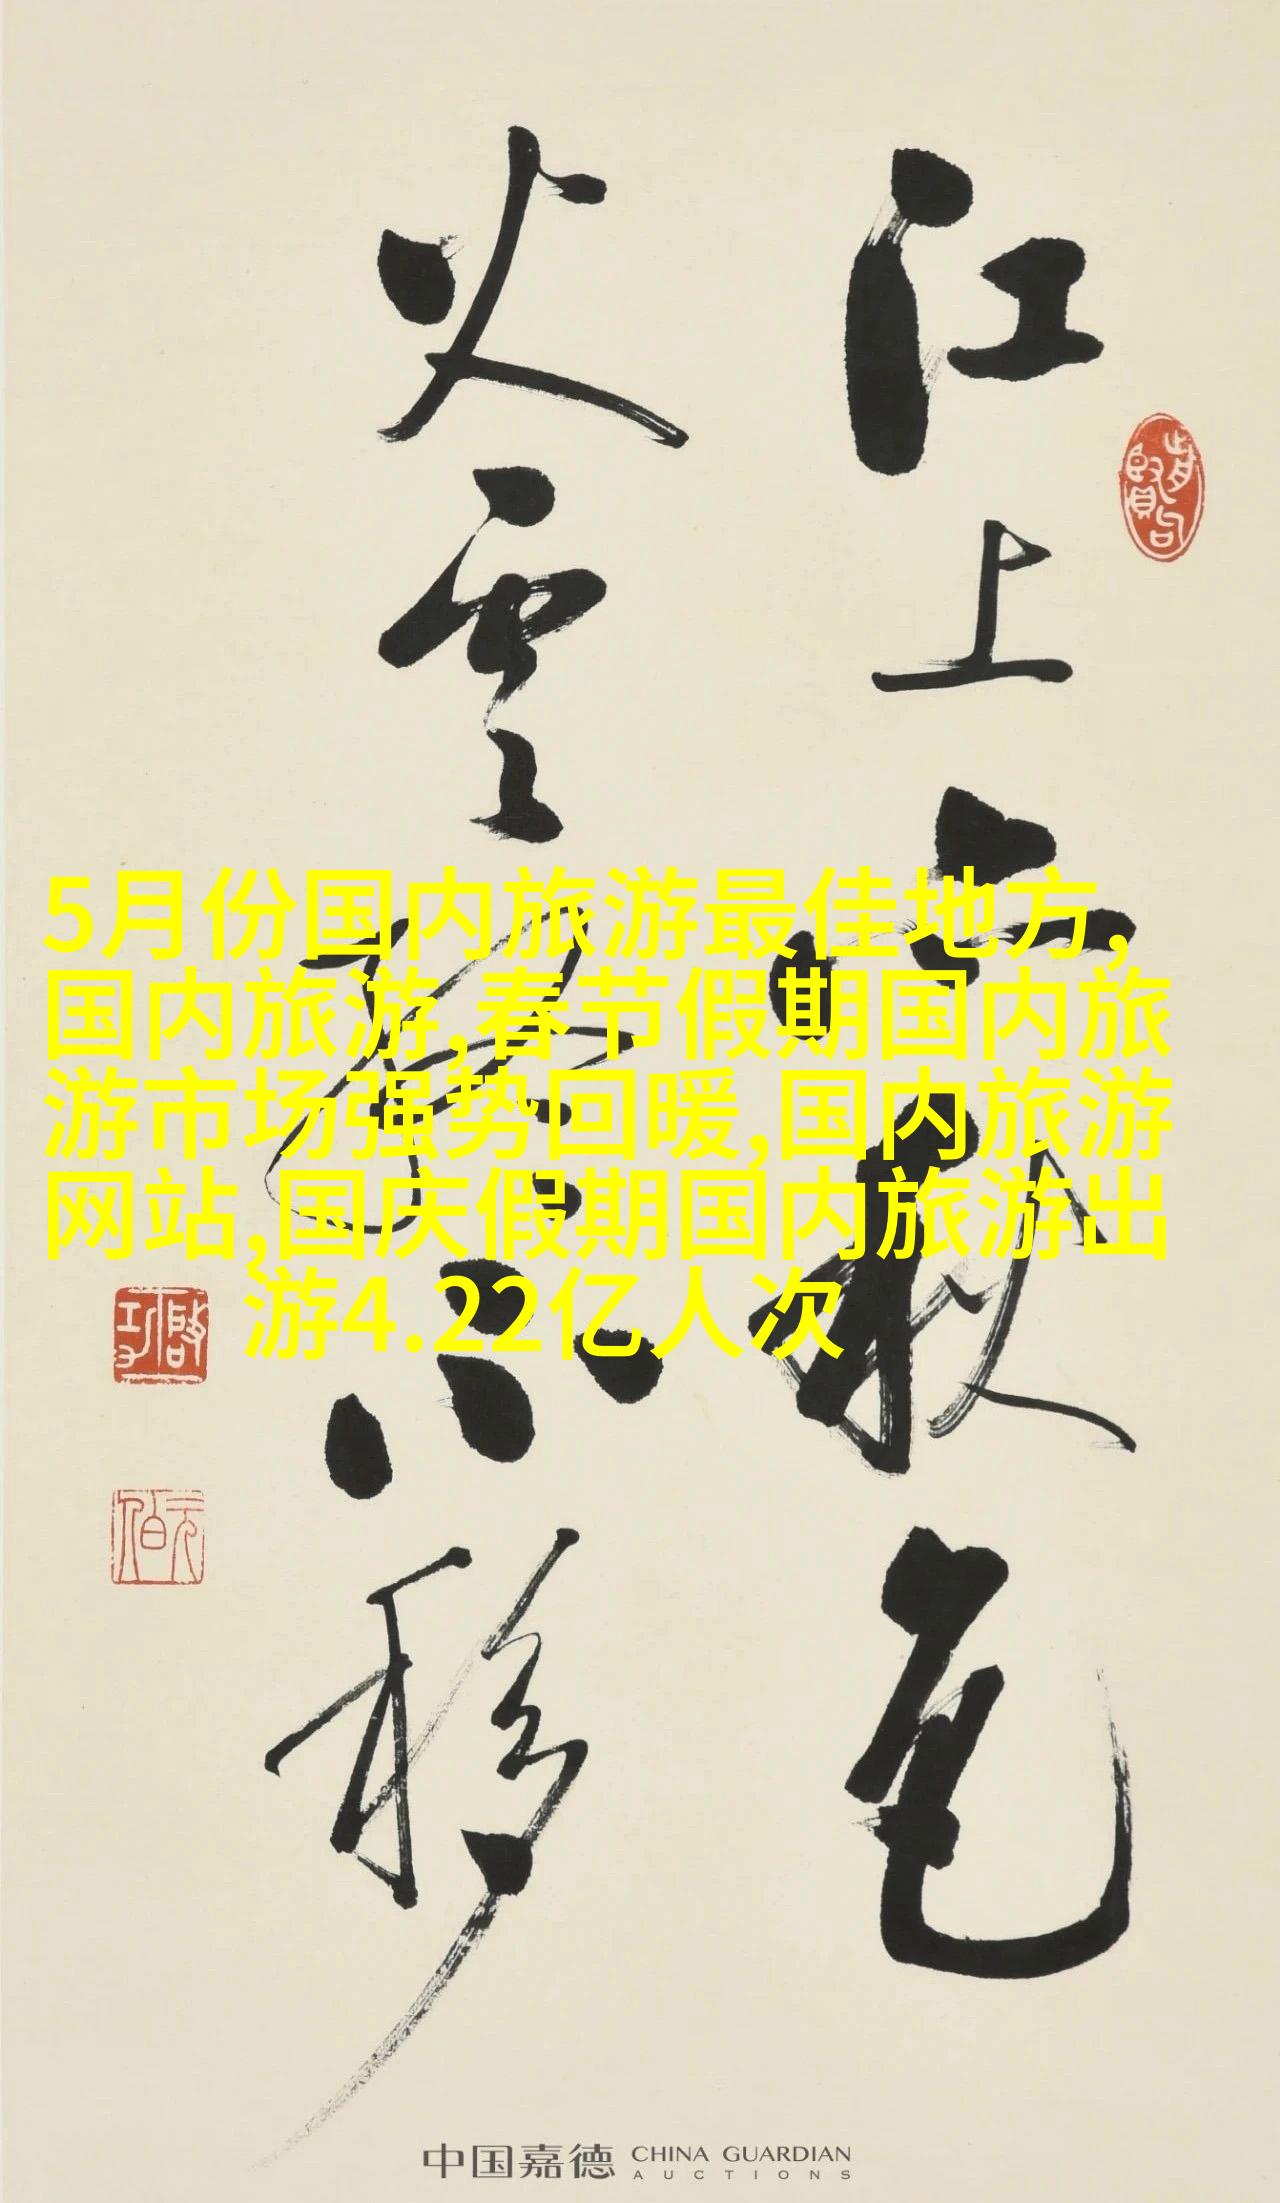 江上亦秋色
火雲終不移
啟功
元伯
5月份国内旅游最佳地方,
国内旅游,春节假期国内旅
游市场强势回暖,国内旅游
网站,国庆假期国内旅游出
游4.22亿人次
中国嘉德 CHINA GUARDIAN
AUCTIONS